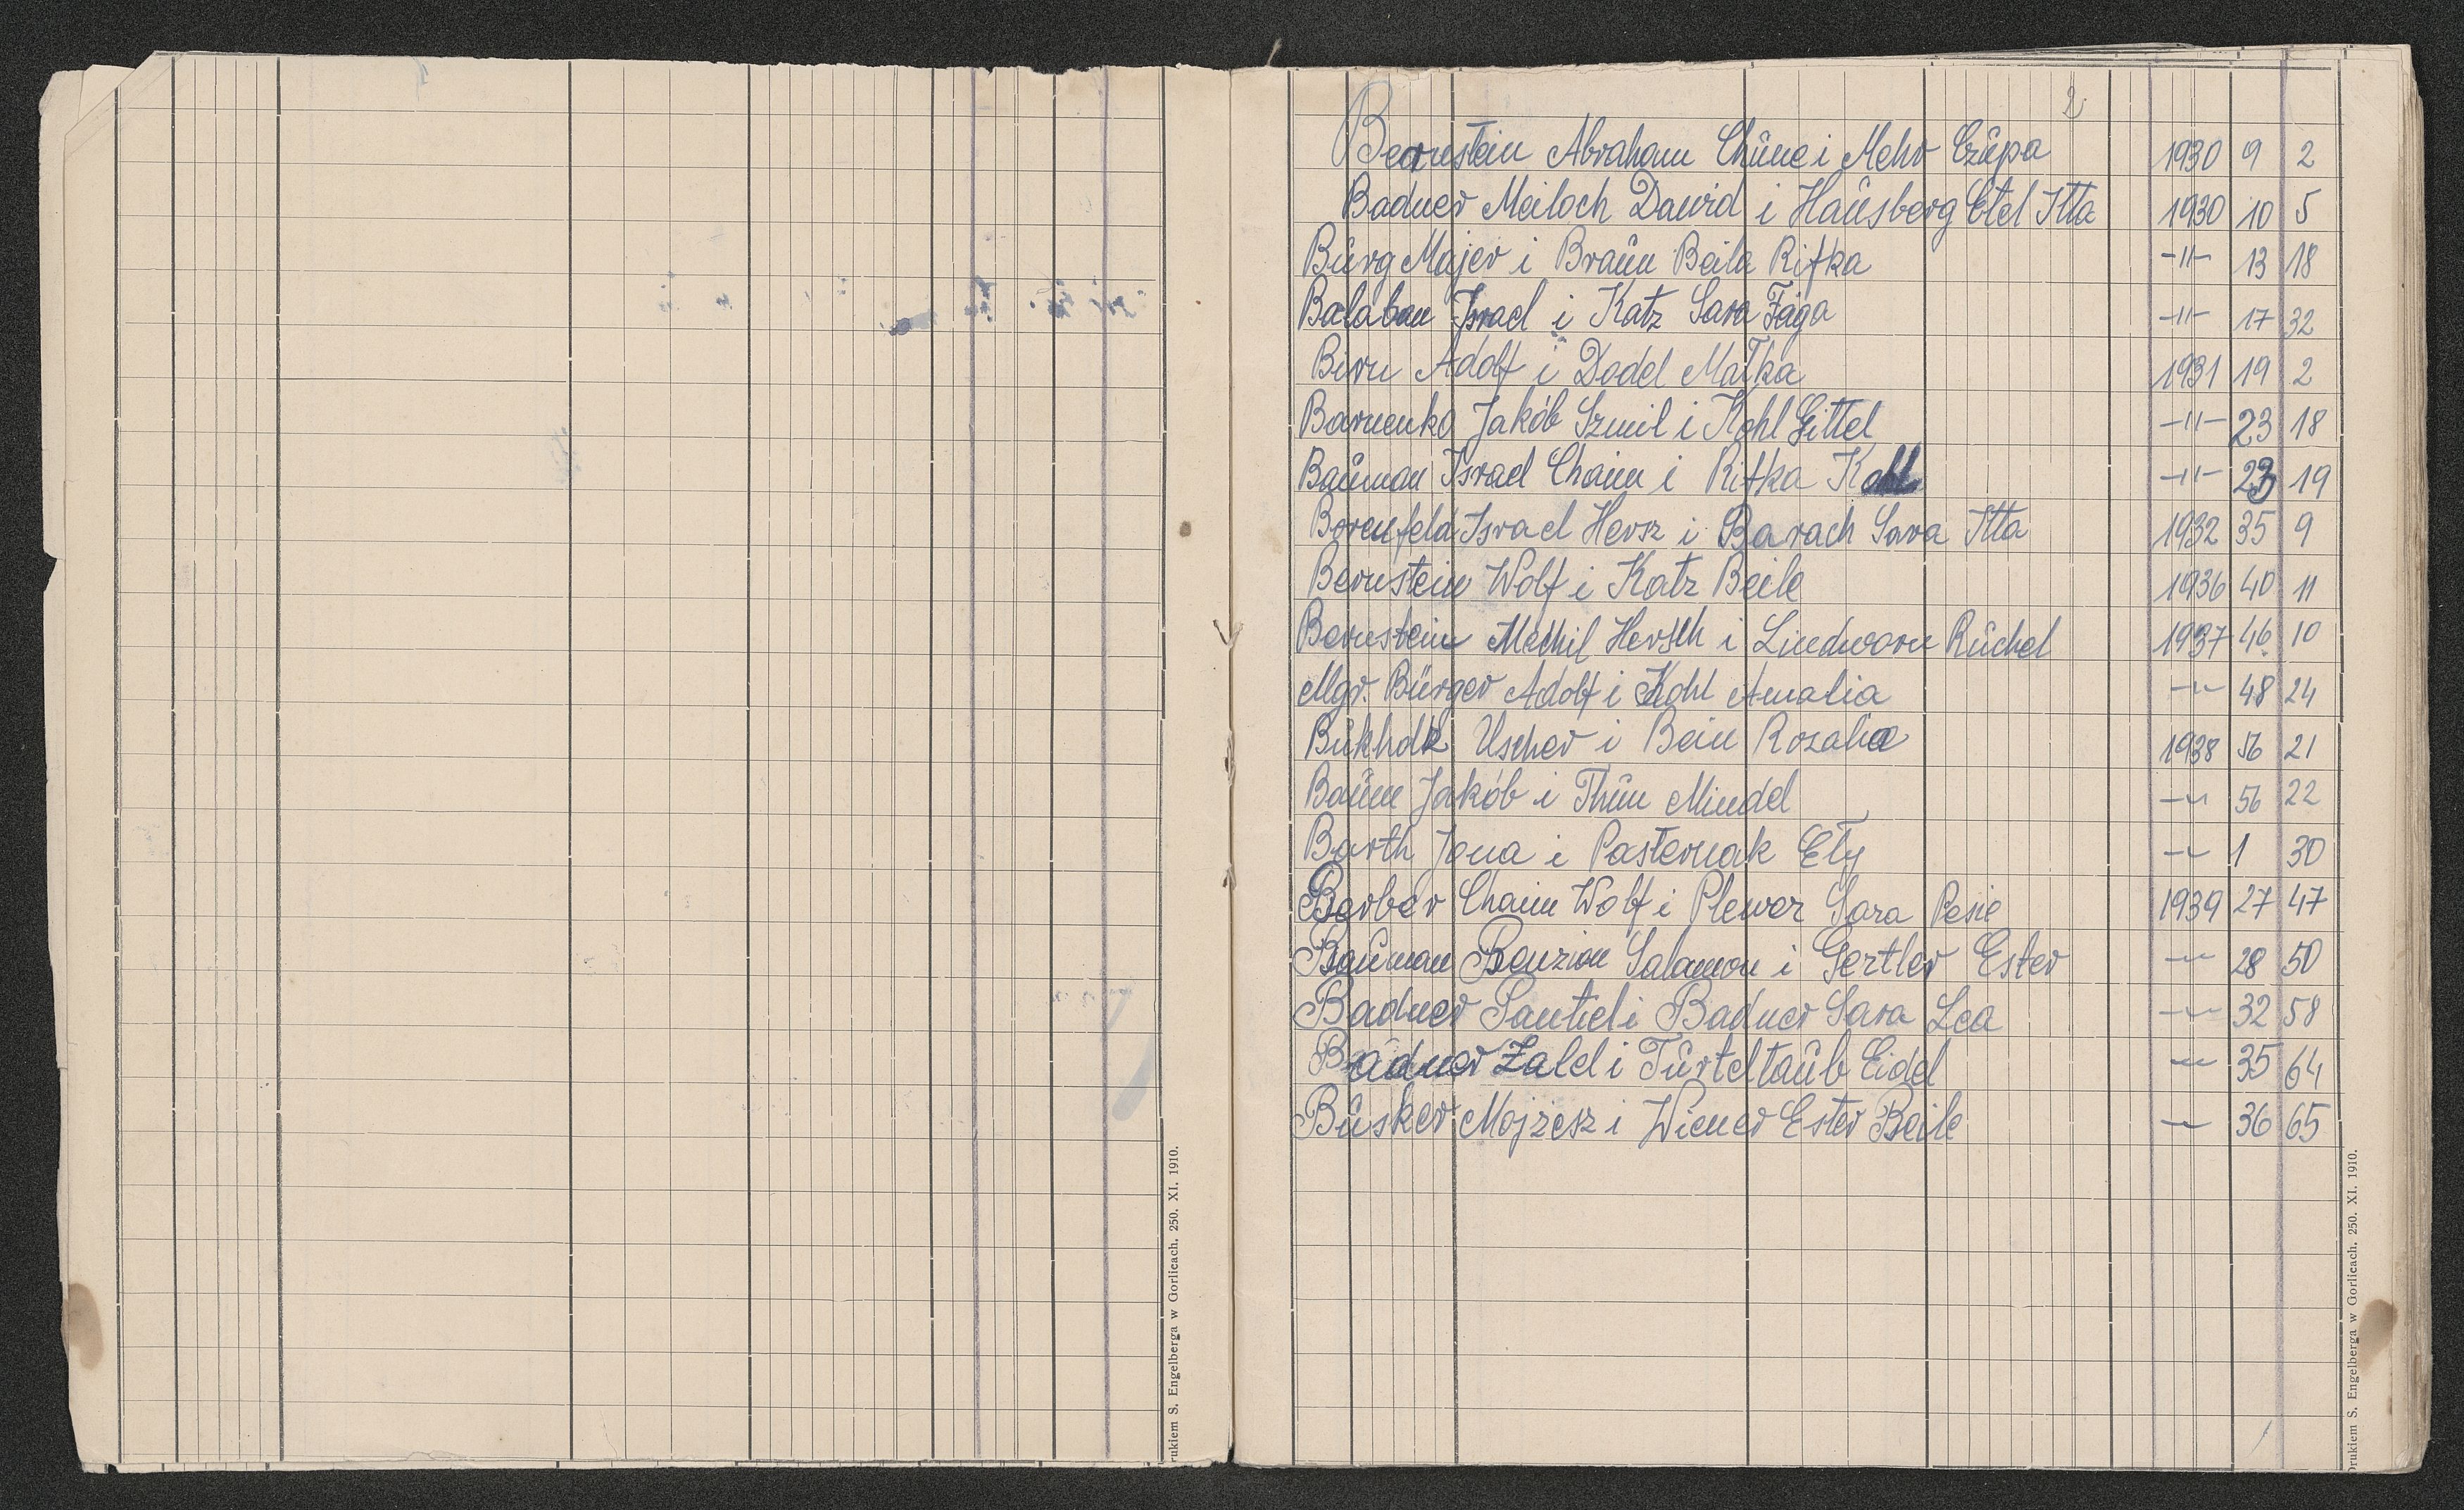 2
Bernstein Abraham Chüne i Mehr Czüpa 1930 9 2
Badner Meiloch Dawid i Haüsberg Etel Itta 1930 10 5
Bürg Majer i Braün Beila Rifka -"- 13 18
Balaban Israel i Katz Sara Fäga -"- 17 32
Birn Adolf i Dodel Matka 1931 19 2
Barnenko Jakób Szmil i Kohl Gittel -"- 23 18
Baüman Israel Chaim i Rifka Kohl -"- 23 19
Borenfeld Israel Hersz i Barach Sara Itta 1932 35 9
Bernstein Wolf i Katz Beile 1936 40 11
Bernstein Mechil Hersch i Lindworn Rüchel 1937 46 10
Mgr. Bürger Adolf i Kohl Amalia -"- 48 24
Bükholz Uscher i Bein Rozalia 1938 56 21
Baüm Jakób i Thün Mindel -"- 56 22
Barth Jona i Pasternak Ety -"- 1 30
Berber Chaim Wolf i Plewer Sara Pesie 1939 27 47
Baüman Benzion Salamon i Gertler Ester -"- 28 50
Badner Santiel i Badner Sara Lea -"- 32 58
Badner Zalel i Türteltaüb Eidel -"- 35 64
Büsker Mojzesz i Wiener Ester Beile -"- 36 65
rukiem S. Engelberga w Gorlicach. 250. XI. 1910.
Drukiem S. Engelberga w Gorlicach. 250. XI. 1910.